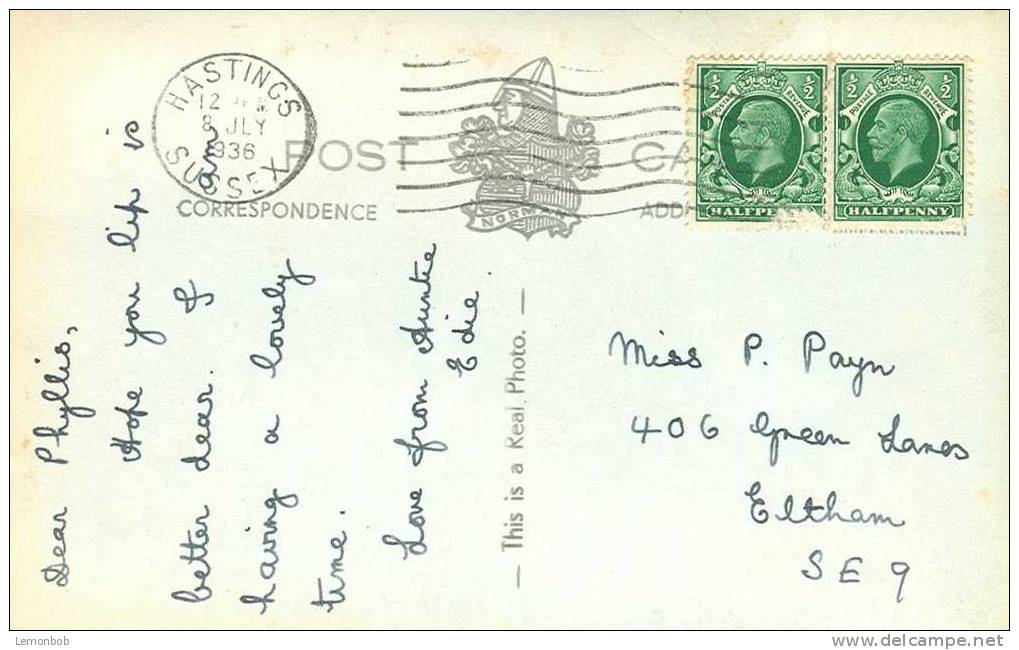 HASTINGS
12
8 JLY
1936
SUSSEX
POST
CORRESPONDENCE
NORMAN
½ ½
POSTAGE REVENUE
HALFPENNY
½ ½
POSTAGE REVENUE
HALFPENNY
Dear Phyllis,
Hope your lip is
better dear. I am
having a lovely
time.
Love from Auntie
Edie.
— This is a Real Photo. —
Miss P. Payn
406 Green Lanes
Eltham
SE 9
Lemonbob
www.delcampe.net